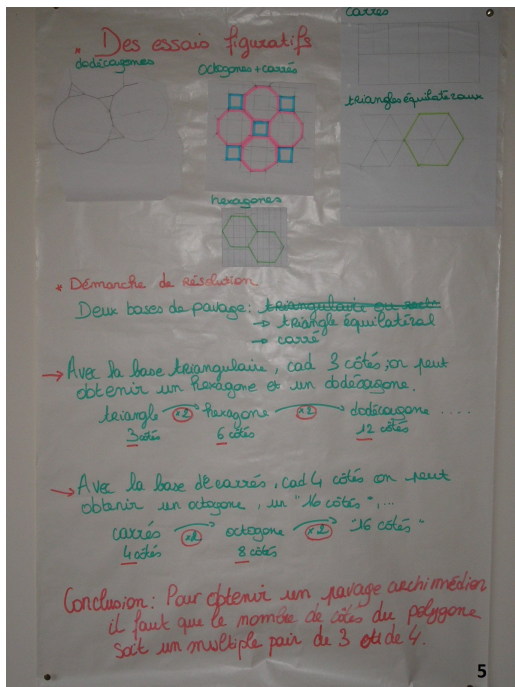 carrés
* Des essais figuratifs
dodécagones
octogones + carrés
triangles équilatéraux
hexagones
* Démarche de résolution
Deux bases de pavage : triangulaire ou rectr
→ triangle équilatéral
→ carré
→ Avec la base triangulaire, cad 3 côtés, on peut
obtenir un hexagone et un dodécagone.
triangle x2 hexagone x2 dodécagone ....
3 côtés 6 côtés 12 côtés
→ Avec la base de carrés, cad 4 côtés on peut
obtenir un octogone, un "16 côtés",...
carrés x2 octogone x2 "16 côtés"
4 côtés 8 côtés
Conclusion : Pour obtenir un pavage archimédien
il faut que le nombre de côtés du polygone
soit un multiple pair de 3 et de 4.
5